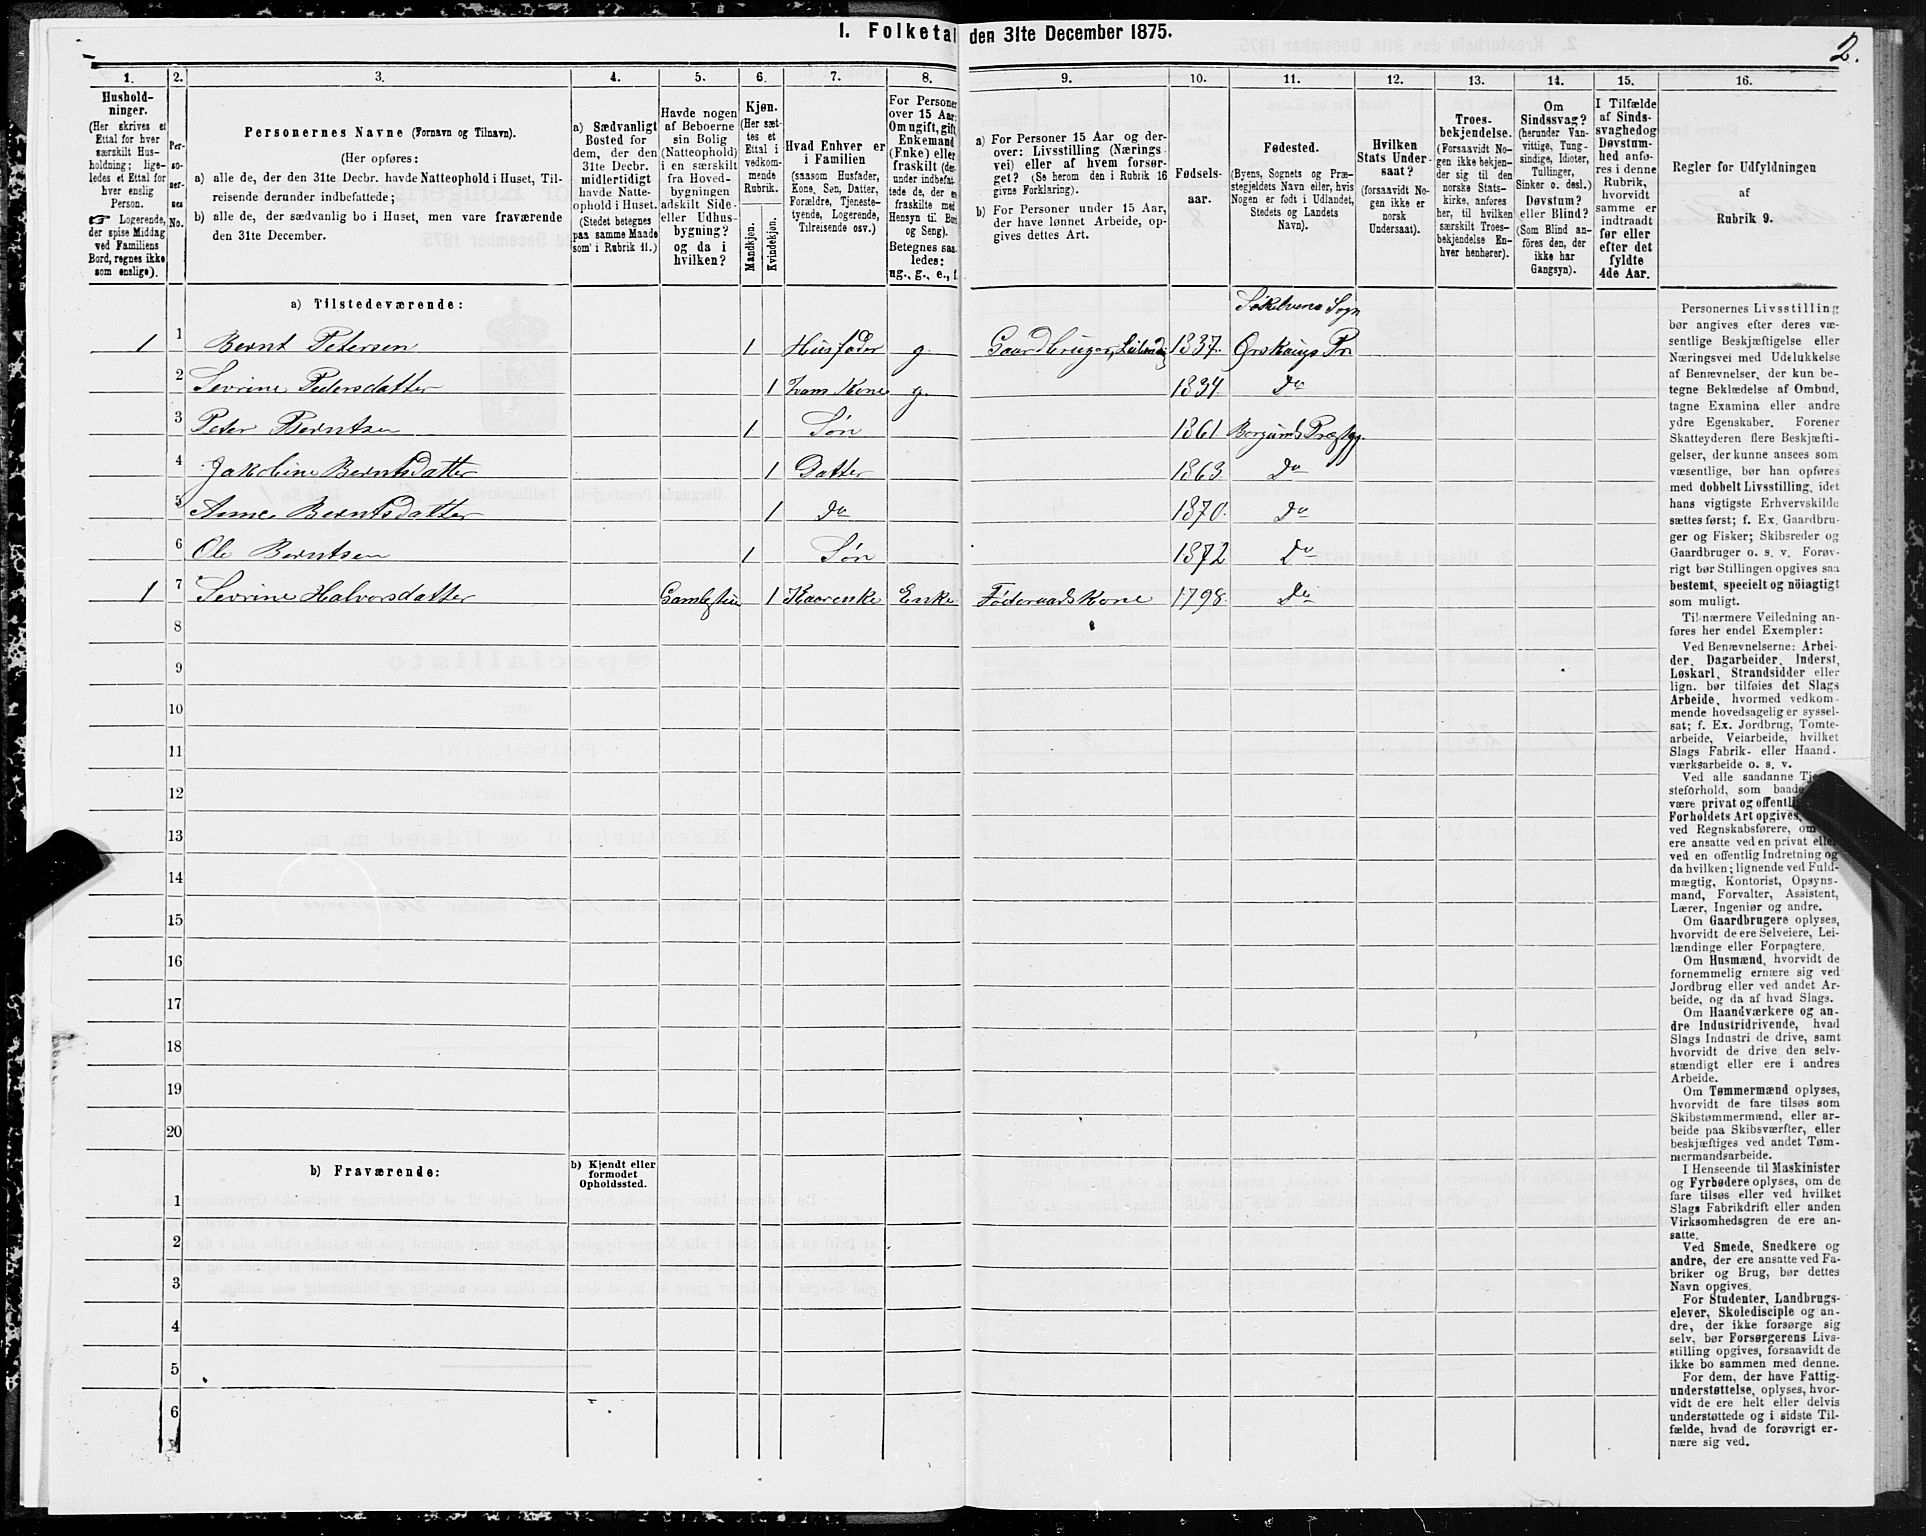 I. Folketal den 31te December 1875.
2.
1. 2. 3. 4. 5. 6. 7. 8. 9. 10. 11. 12. 13. 14. 15. 16.
Husholdninger.
(Her skrives et
Ettal for hver
særskilt Husholdning;
ligeledes et Ettal for
hver enslig
Person.
Logerende,
der spise Middag
ved Familiens
Bord, regnes ikke
som enslige).
Personernes No.
Personernes Navne (Fornavn og Tilnavn).
(Her opføres:
a) alle de, der den 31te Decbr. havde Natteophold i Huset, Tilreisende derunder indbefattede;
b) alle de, der sædvanlig bo i Huset, men vare fraværende
den 31te December.
a) Sædvanligt
Bosted for
dem, der den
31te Decbr.
midlertidigt
havde Natteophold
i Huset.
(Stedet betegnes
paa samme Maade
som i Rubrik 11.)
Havde nogen
af Beboerne
sin Bolig
(Natteophold)
i en særskilt
fra Hovedbygningen
adskilt Side-
eller Udhusbygning?
og da i
hvilken?
Kjøn.
(Her sættes
et
Ettal i
vedkommende
Rubrik.
Mandkjøn.
Kvindekjøn.
Hvad Enhver er
i Familien
(saasom Husfader,
Kone, Søn, Datter,
Forældre, Tjenestetyende,
Logerende,
Tilreisende osv.)
For Personer
over 15 Aar:
Om ugift, gift
Enkemand
(Enke) eller
fraskilt (derunder
indbefattede
de, der er
fraskilte med
Hensyn til Bord
og Seng).
Betegnes saaledes:
ug., g., e., f.
a) For Personer 15 Aar og derover:
Livsstilling (Næringsvei)
eller af hvem forsørget?
(Se herom den i Rubrik 16
givne Forklaring).
b) For Personer under 15 Aar,
der have lønnet Arbeide, opgives
dettes Art.
Fødselsaar.
Fødested.
(Byens, Sognets og Præstegjeldets
Navn eller, hvis
Nogen er født i Udlandet,
Stedets og Landets
Navn).
Hvilken
Stats Undersaat?
(forsaavidt Nogen
ikke er
norsk
Undersaat).
Troesbekjendelse.
(Forsaavidt Nogen
ikke bekjender
sig til den
norske Statskirke,
anføres
her, til hvilken
særskilt Troesbekjendelse
Enhver
henhører).
Om
Sindssvag?
(herunder Vanvittige,
Tungsindige,
Idioter,
Tullinger,
Sinker o. desl.)
Døvstum?
eller Blind?
(Som Blind anføres
den, der
ikke har
Gangsyn).
I Tilfælde
af Sindssvaghed
og
Døvstumhed
anføres
i denne
Rubrik,
hvorvidt
samme er
indtraadt
før eller
efter det
fyldte
4de Aar.
Regler for Udfyldningen
af
Rubrik 9.
a) Tilstedeværende:
Søkelvens Sogn
1 1 Bernt Petersen 1 Husfader g. Gaardbruger, Leilending 1837. Ørskougs Pr
2 Sevrine Pedersdatter 1 hans Kone g. 1834 Do
3 Peter Berntsen 1 Søn 1861 Borgunds Præstgj.
4 Jakobine Berntsdatter 1 Datter 1863. Do
5 Anne Berntsdatter 1 Do 1870. Do
6 Ole Berntsen 1 Søn 1872 Do
1 7 Sevrine Halvorsdatter 1 Enke Føderaads Kone 1798. Do
8
9
10
11
12
13
14
15
16
17
18
19
20
b) Fraværende:
b) Kjendt eller
formodet
Opholdssted.
1
2
3
4
5
6
Personernes Livsstilling
bør angives efter deres væsentlige
Beskjæftigelse eller
Næringsvei med Udelukkelse
af Benævnelser, der kun betegne
Beklædelse af Ombud,
tagne Examina eller andre
ydre Egenskaber. Forener
Skatteyderen flere Beskjæftigelser,
der kunne ansees som
væsentlige, bør han opføres
med dobbelt Livsstilling, idet
hans vigtigste Erhvervskilde
sættes først; f. Ex. Gaardbruger
og Fisker; Skibsreder og
Gaardbruger o. s. v. Forøvrigt
bør Stillingen opgives saa
bestemt, specielt og nöiagtigt
som muligt.
Til nærmere Veiledning anføres
her endel Exempler:
Ved Benævnelserne: Arbeider,
Dagarbeider, Inderst,
Løskarl, Strandsidder eller
lign. bør tilføies det Slags
Arbeide, hvormed vedkommende
hovedsagelig er sysselsat;
f. Ex. Jordbrug, Tomtearbeide,
Veiarbeide, hvilket
Slags Fabrik- eller Haandværksarbeide
o. s. v.
Ved alle saadanne Tjenesteforhold,
som baade
være privat og offentlig
Forholdets Art opgives,
ved Regnskabsførere, om
ere ansatte ved en privat eller
ved en offentlig Indretning og
da hvilken; lignende ved Fuldmægtig,
Kontorist, Opsynsmand,
Forvalter, Assistent,
Lærer, Ingeniør og andre.
Om Gaardbrugere oplyses,
hvorvidt de ere Selveiere, Leilændinge
eller Forpagtere.
Om Husmænd, hvorvidt de
fornemmelig ernære sig ved
Jordbrug eller ved andet Arbeide,
og da af hvad Slags.
Om Haandværkere og andre
Industridrivende, hvad
Slags Industri de drive, samt
hvorvidt de drive den selvstændigt
eller ere i andres
Arbeide.
Om Tømmermænd oplyses,
hvorvidt de fare tilsøs som
Skibstømmermænd, eller arbeide
paa Skibsværfter, eller
beskjæftiges ved andet Tømmermandsarbeide.
I Henseende til Maskinister
og Fyrbødere oplyses, om de
fare tilsøs eller ved hvilket
Slags Fabrikdrift eller anden
Virksomhedsgren de ere ansatte.
Ved Smede, Snedkere og
andre, der ere ansatte ved Fabriker
og Brug, bør dettes
Navn opgives.
For Studenter, Landbrugselever,
Skoledisciple og andre,
der ikke forsørge sig
selv, bør Forsørgerens Livsstilling
opgives, forsaavidt de
ikke bo sammen med denne.
For dem, der have Fattigunderstøttelse,
oplyses, hvorvidt
de ere helt eller delvis
understøttede og i sidste Tilfælde,
hvad de forøvrigt ernære
sig ved.